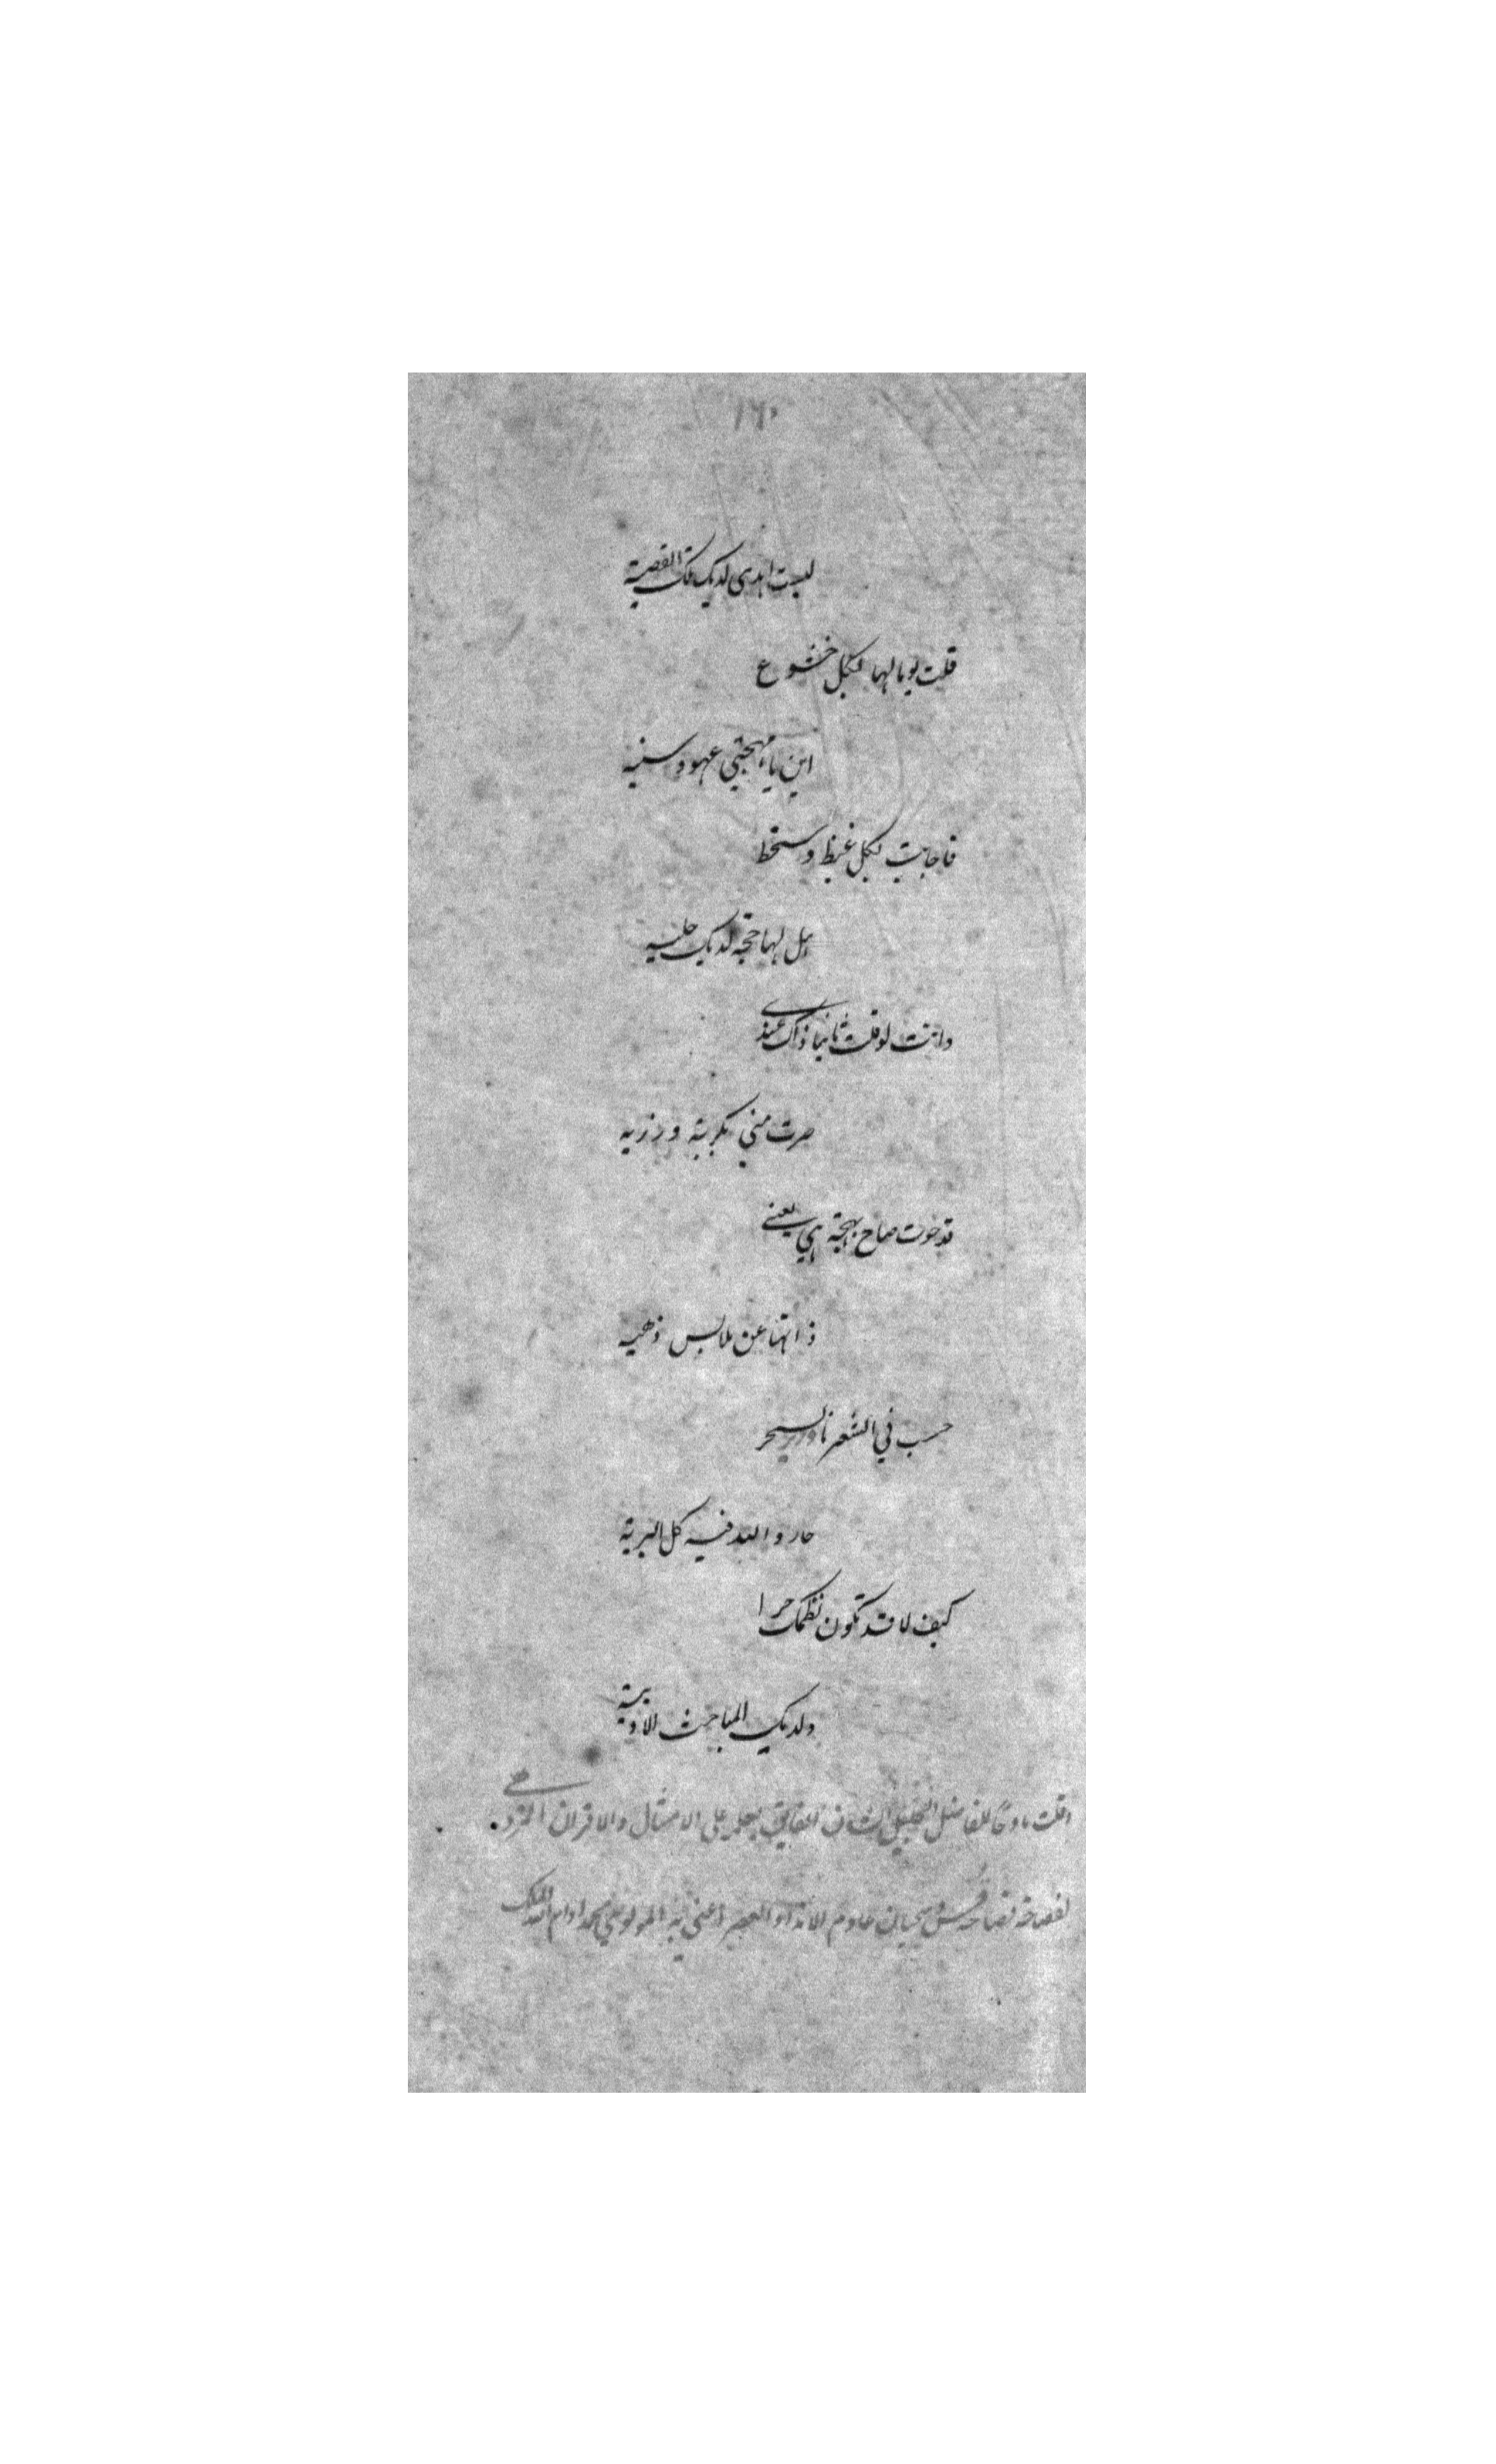 ١٦٠
ليست اهدى لديك تلك القصية
قلت يوما لها بكل خشوع
اين يا مهجتي عهود سنيه
فاجابت بكل غيظ وسخط
هل لها حجة لديك جليه
وانت لو قلت ثانيا ذاك عندي
صرت مني بكربة ورزيه
قد حوت صاح بهجة هي يعني
ذاتها عن ملابس ذهبيه
حسب في الشعر نادر السحر
حار والله فيه كل البرية
كيف لا قد تكون نظمك حرا
ولديك المباحث الادبية
وقلت مادحا للفاضل الجليل الشان الفايق بعلمه على الامثال والاقران المزري
لفصاحته فصاحة قس وسحبان عادم الانداد العصر اعني به المولوي محمد ادام الله